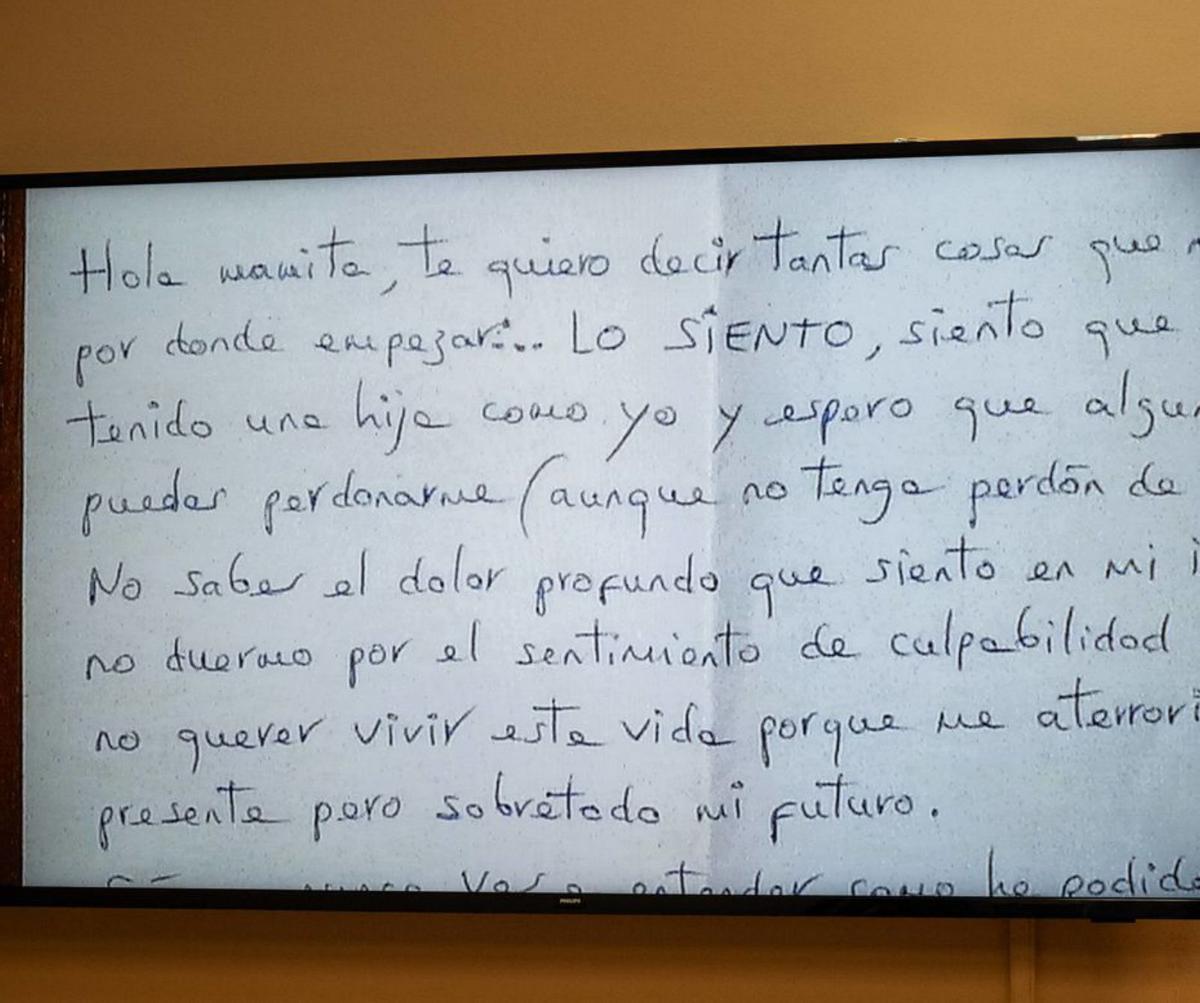 Hola mamita, te quiero decir tantas cosas que
por donde empezar:... LO SIENTO, siento que
tenido una hija como yo y espero que algun
puedas perdonarme (aunque no tenga perdón de
No sabes el dolor profundo que siento en mi i
no duermo por el sentimiento de culpabilidad
no querer vivir esta vida porque me aterrori
presente pero sobretodo mi futuro.
nunca vas a entender como he podido
PHILIPS